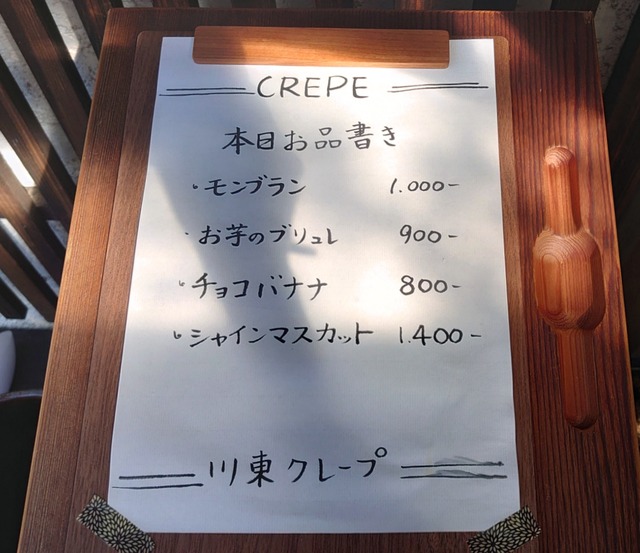 CREPE
本日お品書き
・モンブラン 1.000-
・お芋のブリュレ 900-
・チョコバナナ 800-
・シャインマスカット 1.400-
川東クレープ